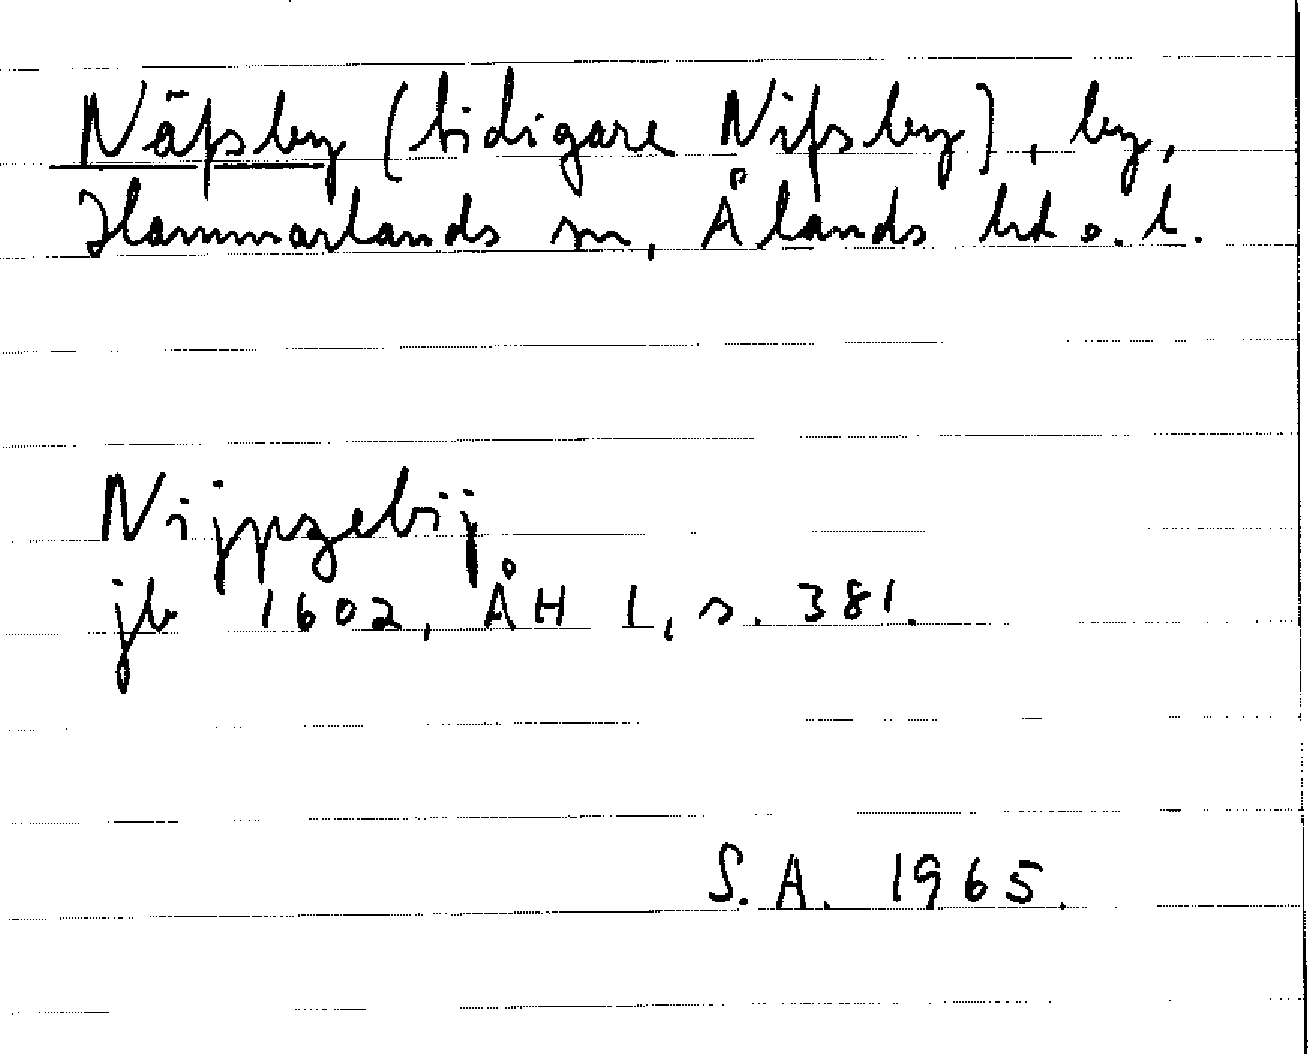 Näfsby (tidigare Nifsby), by,
Hammarlands sn, Ålands hd o. l.
Nijpzebij
jb 1602, ÅH I, s. 381.
S.A. 1965.